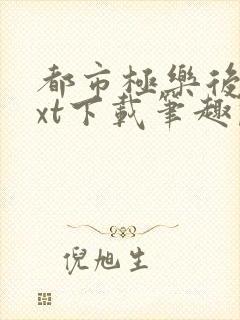 都市極樂後
xt下載筆趣
倪旭生